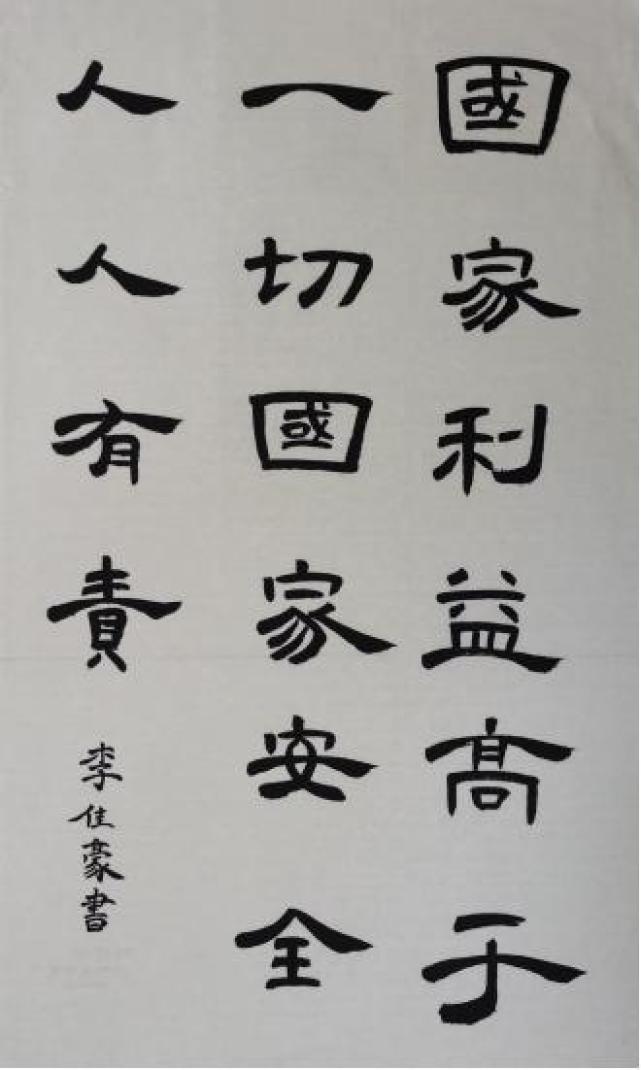 國家利益高于
一切國家安全
人人有責
李佳豪書